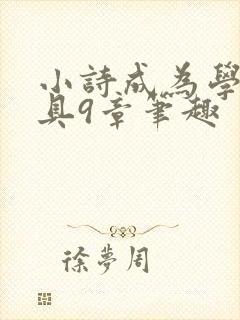 小詩成為學
具9章筆趣
徐夢周